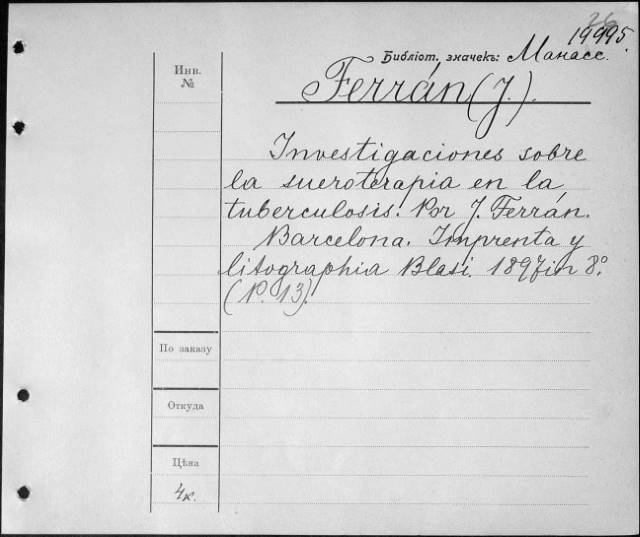 26
19995.
Инв.
№
Библіот. значекъ: Манасс.
Ferrán (J.).
Investigaciones sobre
la sueroterapia en la
tuberculosis. Por J. Ferrán.
Barcelona. Imprenta y
litographia Blasi. 1897 in 8º.
(P. 13).
По заказу
Откуда
Цѣна
4к.